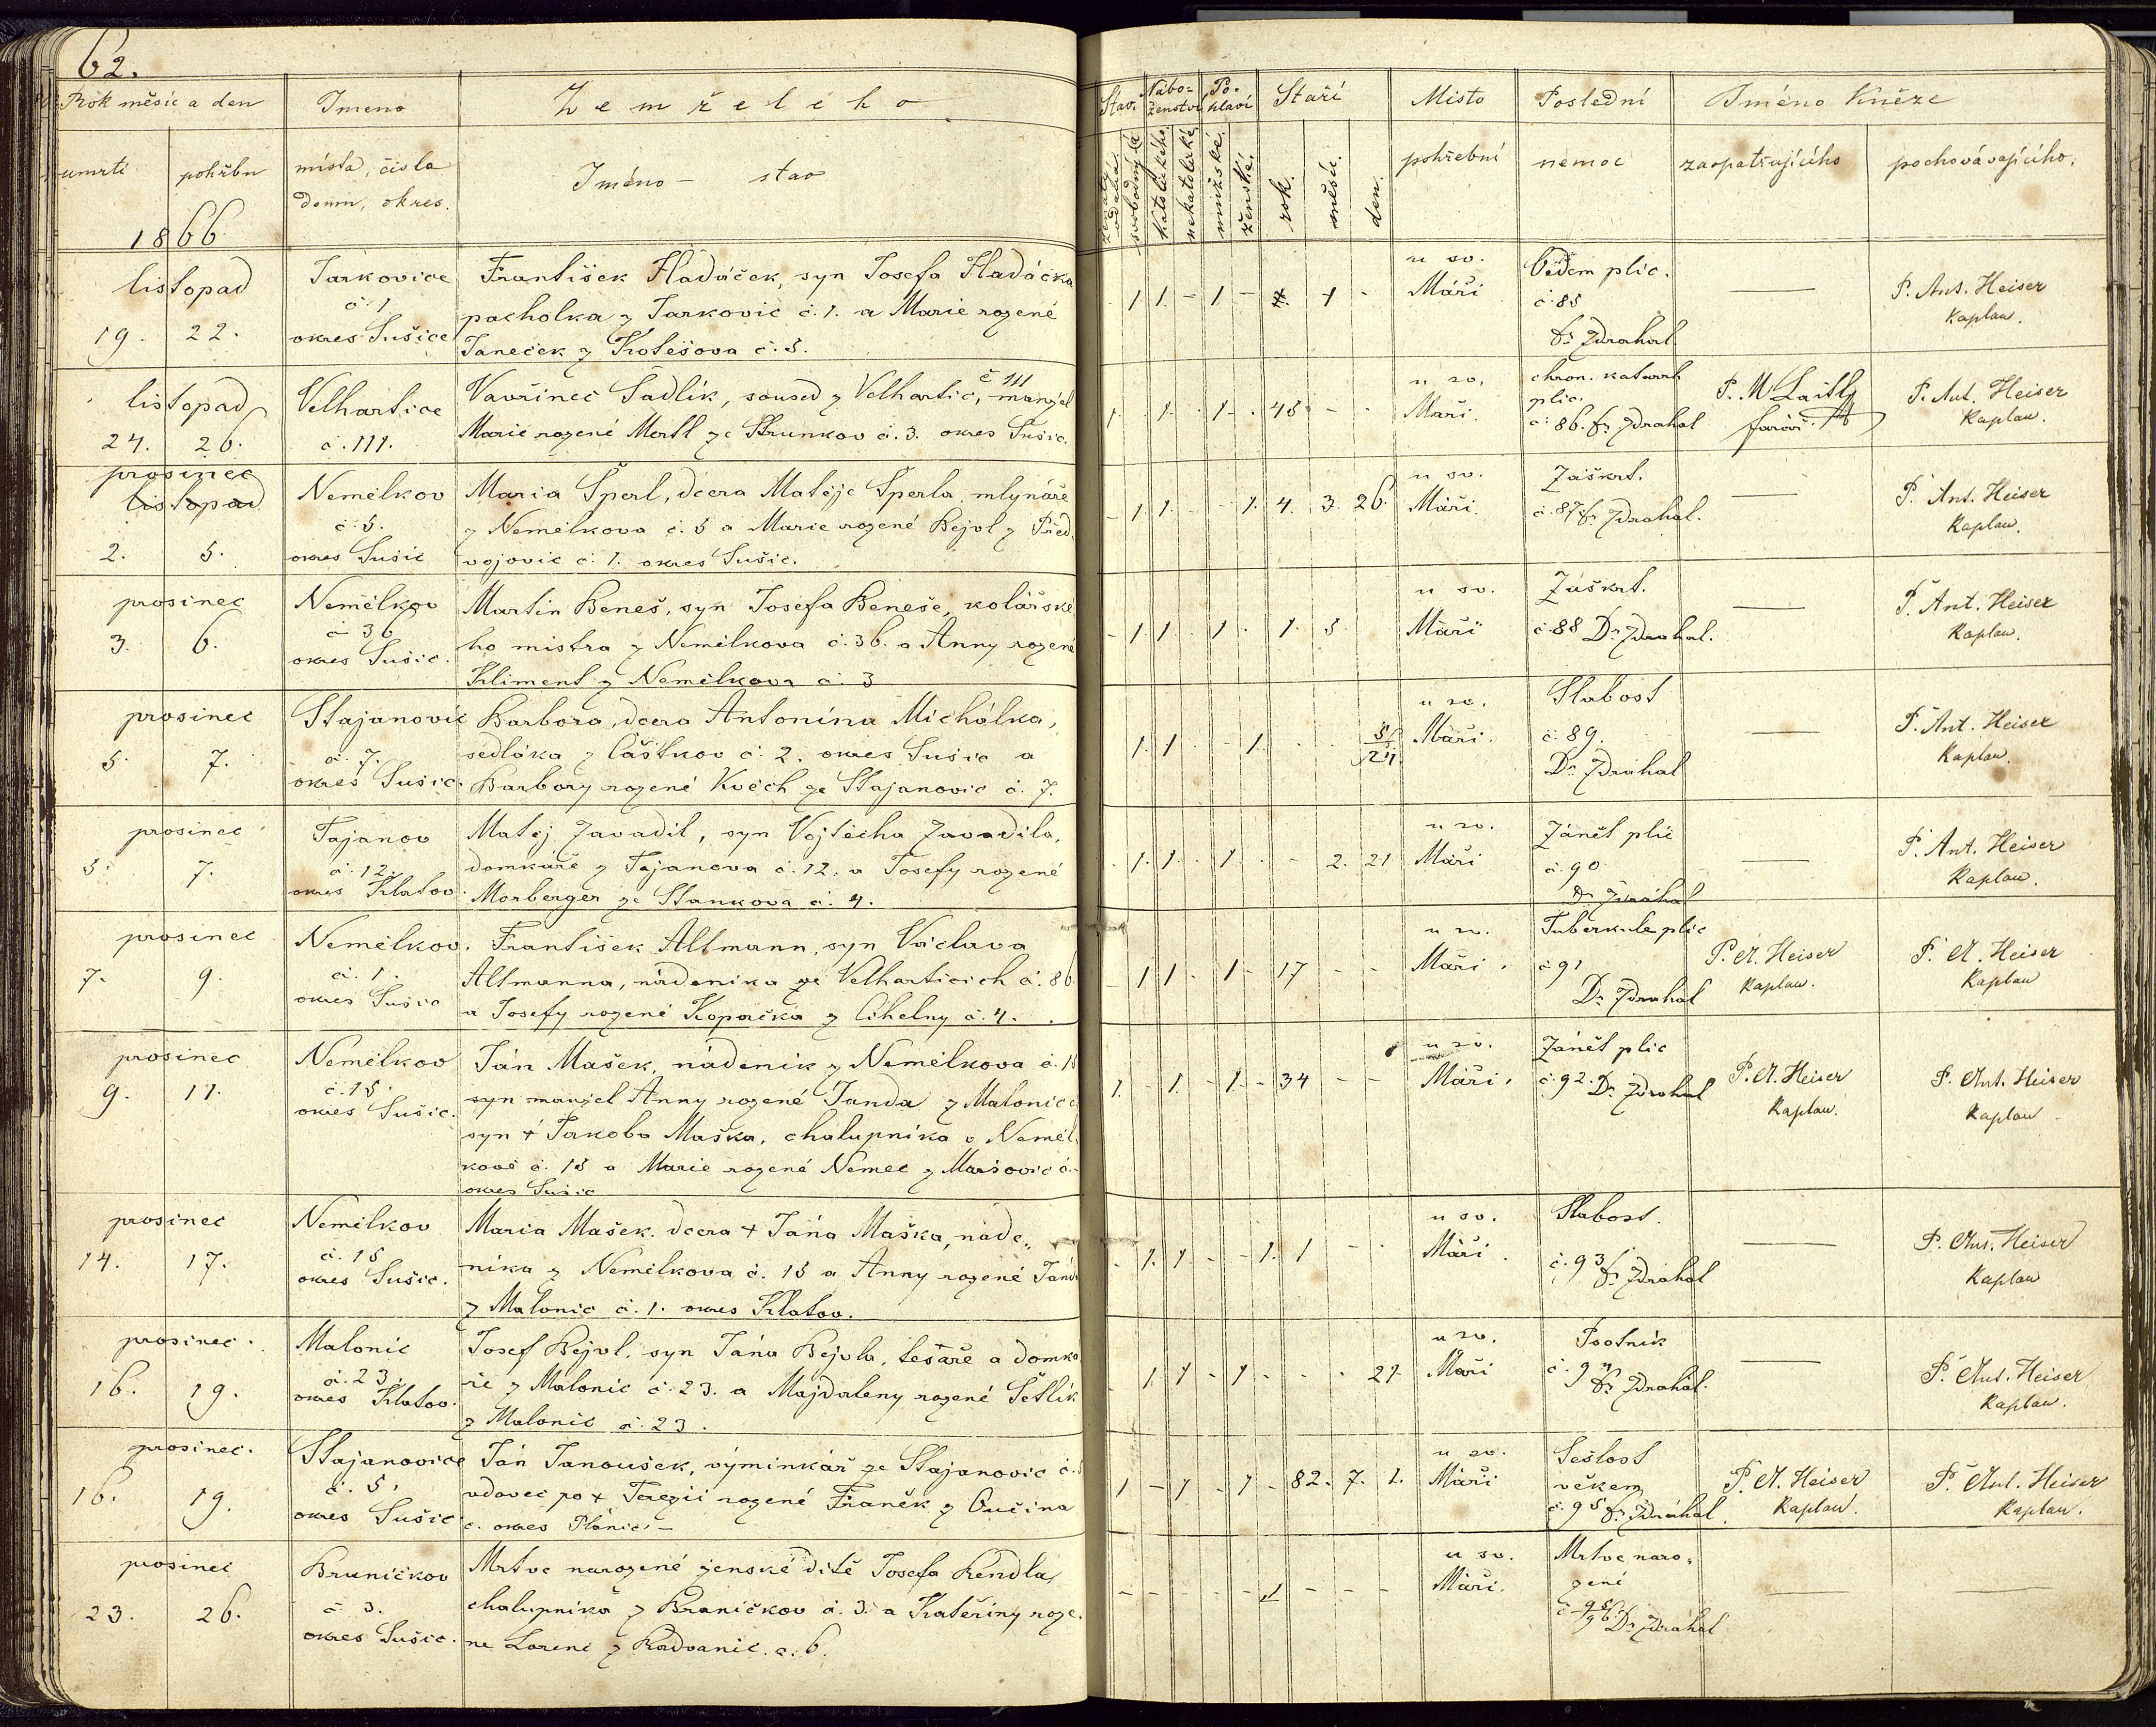 62.
Rok měsíc a den
Jmeno
Zemřelého
umrtí
pohřbu
místa, čísla
domu, okres.
Jméno – stav
1866
Stav.
Nábo-
ženství
Po-
hlaví
Staří
Místo
Poslední
Jméno Kněze
svobodný
Katolického
nekatolické
mužské.
ženské.
rok.
měsíc.
den.
pohřební
nemoc
zaopatřujícího
pochovávajícího.
listopad
19. 22.
Jarkovice
č. 1
okres Sušice
František Hladáček, syn Josefa Hladáčka
pacholka z Jarkovic č. 1. a Marie rozené
Janeček z Kolešova č. 5.
1 1 - 1 - 1 -
u sv.
Máří
Oedem plic.
č. 85
Dr Zdrahal
P. Ant. Heiser
Kaplan.
listopad
24. 26.
Velhartice
č. 111.
Vavřinec Sadlík, soused z Velhartic, č 111 manžel
Marie rozené Mertl ze Strunkov č. 3. okres Sušic.
1. 1. 1. 45 - -
u sv.
Maří.
chron. katarrh
plic.
č. 86. Dr Zdrahal
P. M Laitl
farář
P. Ant. Heiser
Kaplan.
prosinec
listopad
2. 5.
Nemělkov
č. 5.
okres Sušic
Maria Šperl, dcera Matěje Šperla, mlynáře
z Nemělkova č. 5 a Marie rozené Bejvl z Před
vojovic č. 1. okres Sušic.
- 1 1. - - 1. 4. 3. 26.
u sv.
Máří.
Záškrt.
č. 87 Dr Zdrahal.
P. Ant. Heiser
Kaplan.
prosinec
3. 6.
Nemělkov
č 36
okres Sušic.
Martin Beneš, syn Josefa Beneše, kolářské
ho mistra z Nemělkova č. 36. a Anny rozené
Kliment z Nemělkova č. 3
- 1 1 1 1. 5.
u sv.
Máří
Záškrt.
č. 88 Dr Zdrahal.
P. Ant. Heiser
Kaplan.
prosinec
5. 7.
Stajanovic
č. 7.
okres Sušic.
Barbora, dcera Antonína Michálka,
sedláka z Částkov č. 2. okres Sušic a
Barbory rozené Květh ze Stajanovic č. 7.
1. 1 1. 5/24
u sv.
Máří.
Slabost
č. 89.
Dr Zdrahal
P. Ant. Heiser
Kaplan.
prosinec
5. 7.
Tajanov
č. 12.
okres Klatov.
Matěj Zavadil, syn Vojtěcha Zavadila,
domkáře z Tajanova č. 12. a Josefy rozené
Morberger ze Stankova č. 4.
1. 1. 1 - 2. 21
u sv.
Máří
Zánět plic
č. 90
Dr Zdrahal
P. Ant. Heiser
Kaplan.
prosinec
7. 9.
Nemělkov.
č. 1.
okres Sušic
František Altmann, syn Václava
Altmanna, nádeníka ze Velharticích č. 86
a Josefy rozené Kopačka z Cihelny č. 4.
- 1 1 - 1 - 17 - -
u sv.
Máří.
Tuberkule plic
č. 91
Dr Zdrahal
P. A. Heiser
Kaplan.
P. A. Heiser
Kaplan
prosinec
9. 11.
Nemělkov
č. 15.
okres Sušic.
Ján Mašek, nádeník z Nemělkova č. 15
syn manžel Anny rozené Janda z Malonic č
syn † Jakoba Maška, chalupníka v Neměl
kově č. 15 a Marie rozené Nemec z Maršovic č.
okres Sušic
1. - 1 - 1 - 34 - -
u sv.
Máří.
Zánět plic
č. 92. Dr Zdrahal
P. A. Heiser
Kaplan.
P. Ant. Heiser
Kaplan
prosinec
14. 17.
Nemělkov
č. 15
okres Sušic.
Maria Mašek. dcera † Jána Maška, náde„
níka z Nemělkova č. 15 a Anny rozené Jand
z Malonic č. 1. okres Klatov.
- 1. 1 - - 1. 1 - -
u sv.
Máří.
Slabost.
č. 93 Dr Zdrahal
P. Ant. Heiser
Kaplan
prosinec.
16. 19.
Malonic
č. 23.
okres Klatov.
Josef Bejvl, syn Jána Bejvla, tesaře a domka
ře z Malonic č. 23. a Majdaleny rozené Šetlík
z Malonic č. 23.
1. 1 - 1 - - - 21
u sv.
Máří
Psotník
č. 94 Dr Zdrahal.
P. Ant. Heiser
Kaplan.
prosinec.
16. 19.
Stajanovice
č. 5,
okres Sušic
Ján Janoušek, výminkář ze Stajanovic č. 5
vdovec po † Terezii rozené Franěk z Oučína
č. okres Plánic. –
1 - 1 - 1 - 82. 7. 1.
u sv.
Máří
Sešlost
věkem
č. 95 Dr Zdrahal.
P. A. Heiser
Kaplan.
P. Ant. Heiser
Kaplan.
prosinec
23. 26.
Braníčkov
č 3.
okres Sušic.
Mrtvě narozené ženské dítě Josefa Rendla,
chalupníka z Braníčkov č. 3. a Kateřiny roze.
né Lorenc z Radvanic. č. 6.
- - - - - 1 - - -
u sv.
Máří.
Mrtvě naro„
zené
č 96 Dr Zdrahal